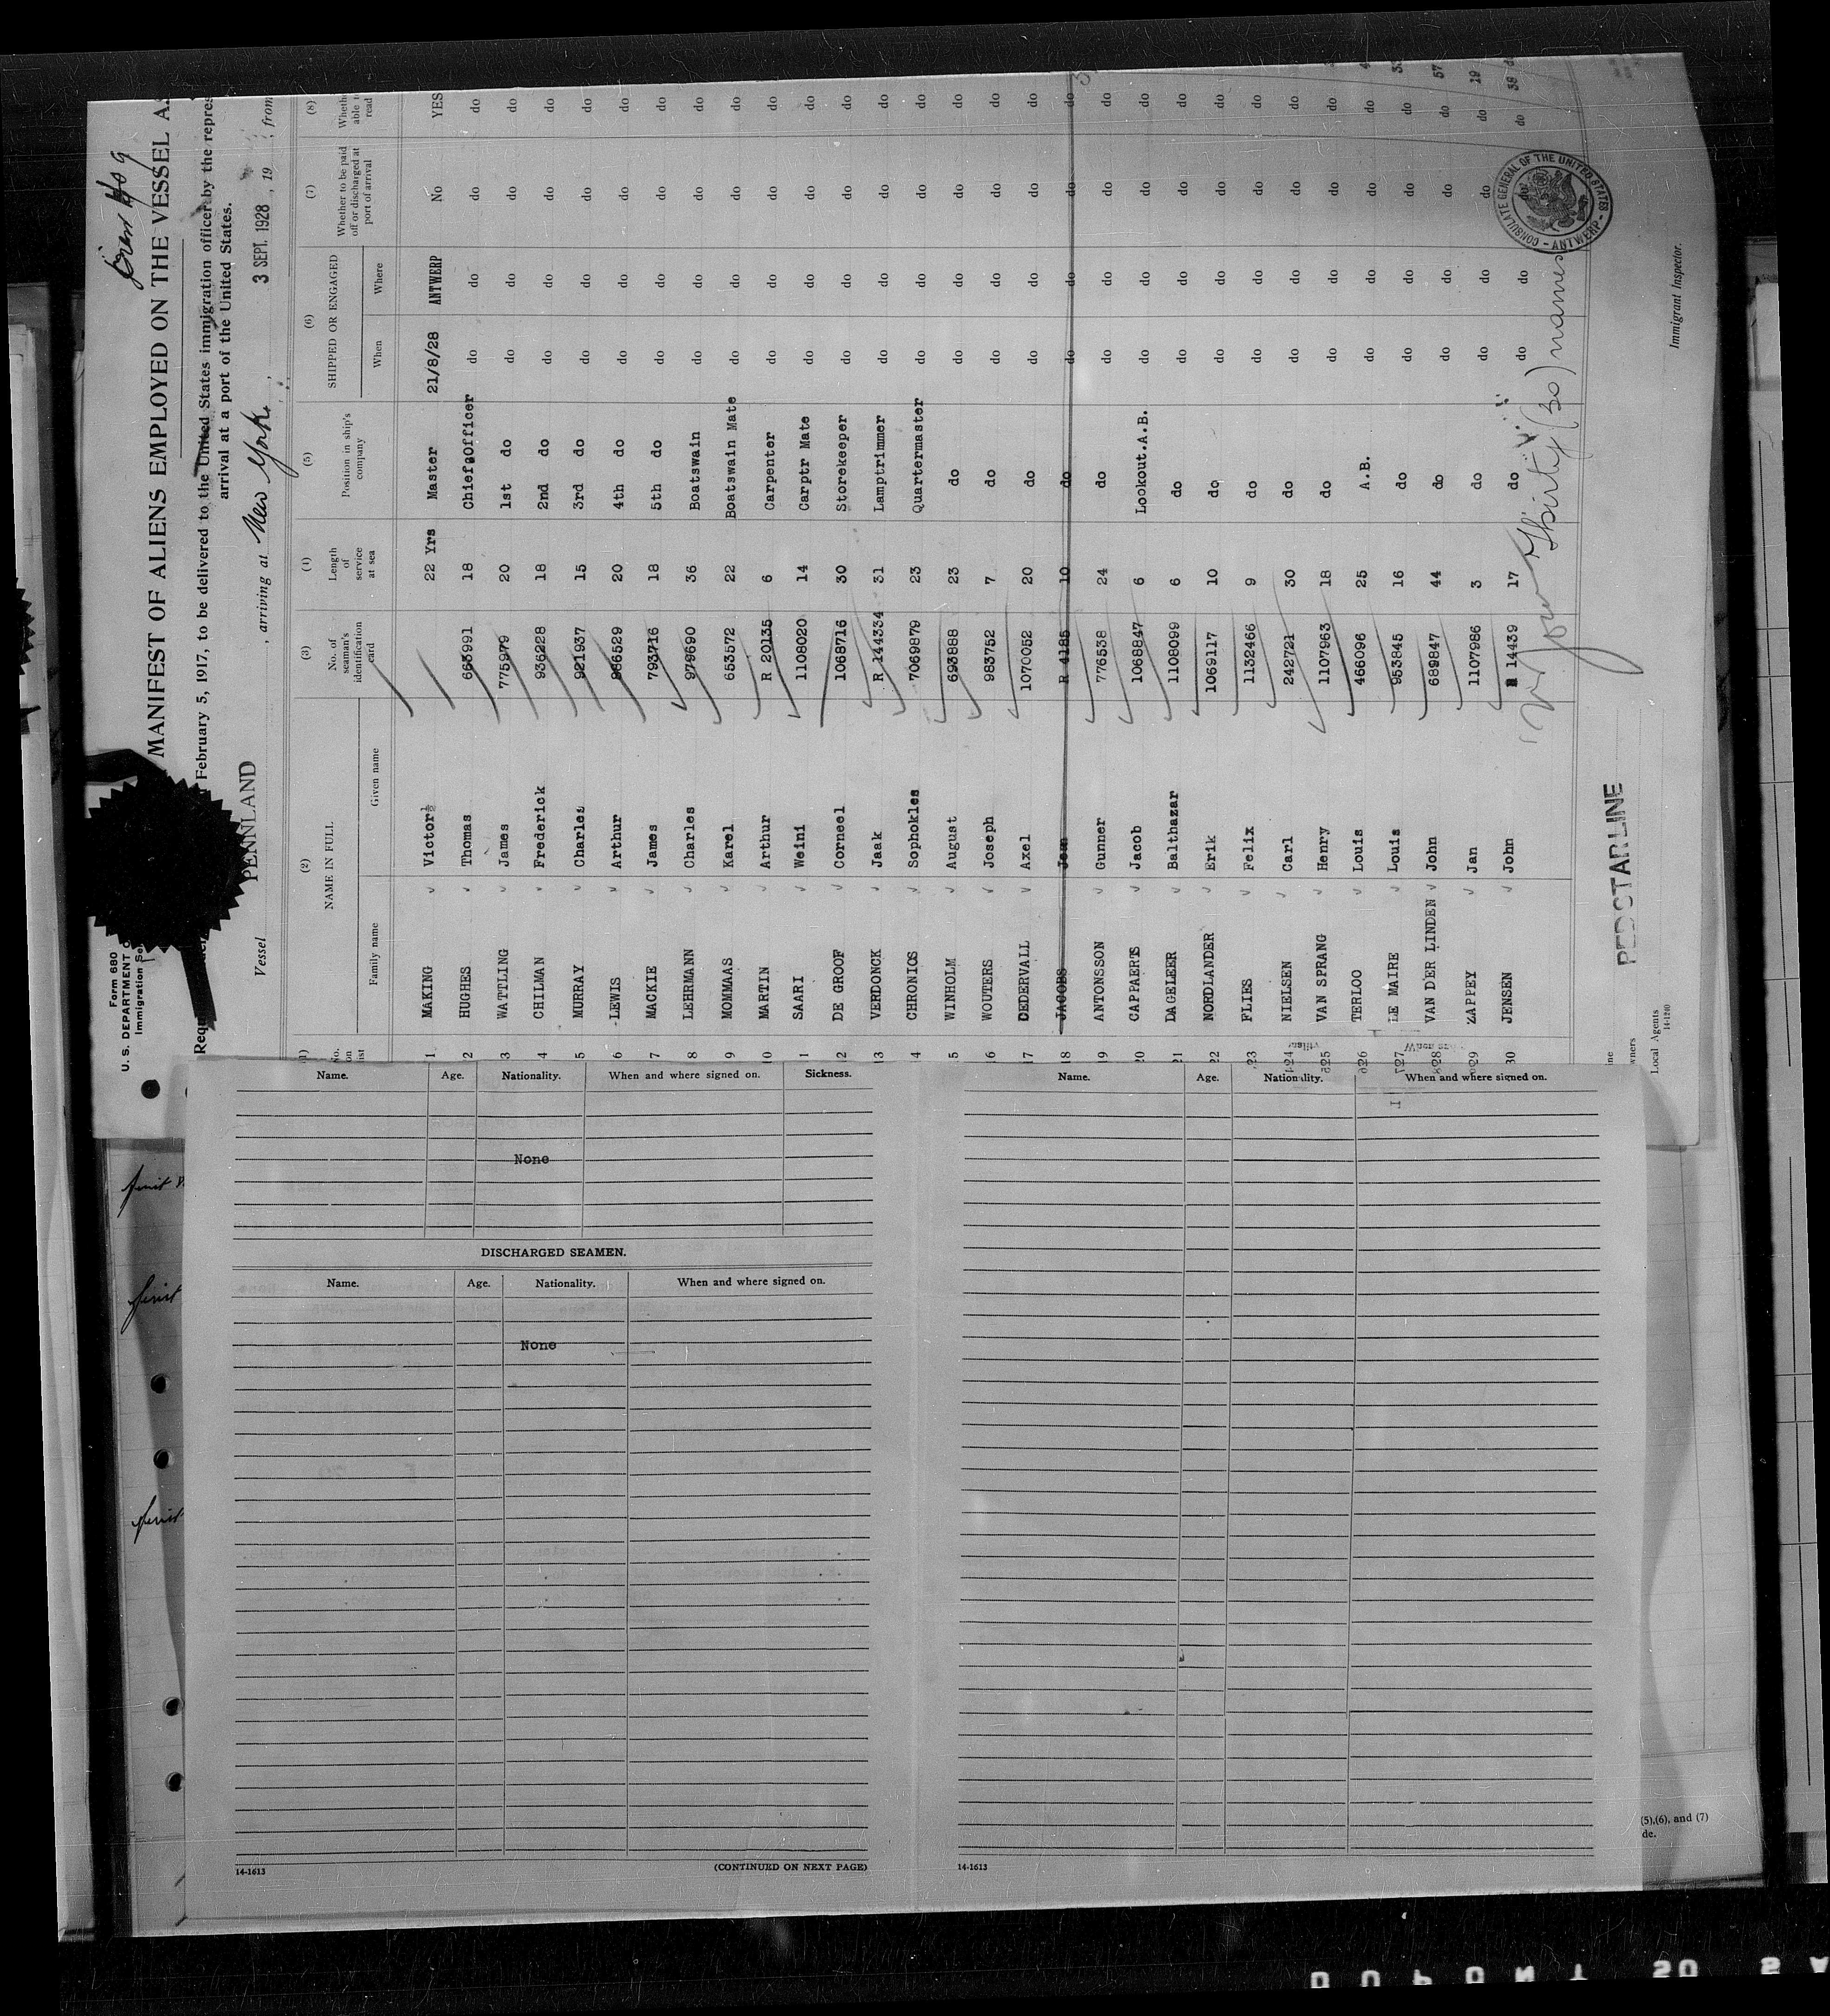 Form 680
U. S. DEPARTMENT O
Immigration Se
MANIFEST OF ALIENS EMPLOYED ON THE VESSEL AS
Requ
February 5, 1917, to be delivered to the United States immigration officer by the repres
arrival at a port of the United States.
Vessel PENNLAND , arriving at New York , 3 SEPT. 1928 , 19 , from
(1) (2) (3) (4) (5) (6) (7) (8)
No. on list NAME IN FULL Family name Given name No. of seaman's identification card Length of service at sea Position in ship's company SHIPPED OR ENGAGED When Where Whether to be paid off or discharged at port of arrival Whethe able to read
1 MAKING Victor 22 Yrs Master 21/8/28 ANTWERP No YES
2 HUGHES Thomas 663991 18 Chief Officer do do do do
3 WATTLING James 775979 20 1st do do do do do
4 CHILMAN Frederick 936228 18 2nd do do do do do
5 MURRAY Charles 921937 15 3rd do do do do do
6 LEWIS Arthur 866529 20 4th do do do do do
7 MACKIE James 793716 18 5th do do do do do
8 LEHRMANN Charles 979690 36 Boatswain do do do do
9 MOMMAAS Karel 653572 22 Boatswain Mate do do do do
10 MARTIN Arthur R 20135 6 Carpenter do do do do
1 SAARI Weini 1108020 14 Carptr Mate do do do do
12 DE GROOF Corneel 1068716 30 Storekeeper do do do do
13 VERDONCK Jaak R 144334 31 Lamptrimmer do do do do
4 CHRONIOS Sophokles 7069879 23 Quartermaster do do do do
5 WINHOLM August 693888 23 do do do do do
6 WOUTERS Joseph 983752 7 do do do do do
17 DEDERVALL Axel 1070052 20 do do do do do
18 JACOBS Jean R 4185 10 do do do do do
19 ANTONSSON Gunner 776538 24 do do do do do
20 CAPPAERTS Jacob 1068847 6 Lookout.A.B. do do do do
21 DAGELEER Balthazar 1108099 6 do do do do do
22 NORDLANDER Erik 1069117 10 do do do do do
23 FLIES Felix 1132466 9 do do do do do
24 NIELSEN Carl 242721 30 do do do do do
25 VAN SPRANG Henry 1107963 18 do do do do do
26 TERLOO Louis 466096 25 A.B. do do do do
27 LE MAIRE Louis 953845 16 do do do do do
28 VAN DER LINDEN John 689847 44 do do do do do
29 ZAPPEY Jan 1107986 3 do do do do do 19
30 JENSEN John 14439 17 do do do do 38 do
Thirty (30) names
CONSULATE GENERAL OF THE UNITED STATES - ANTWERP -
RED STAR LINE
Local Agents
14-1240
Immigrant Inspector.
Name. Age. Nationality. When and where signed on. Sickness.
None
DISCHARGED SEAMEN.
Name. Age. Nationality. When and where signed on.
None
14-1613
(CONTINUED ON NEXT PAGE)
Name. Age. Nationality. When and where signed on.
14-1613
(5),(6), and (7)
de.